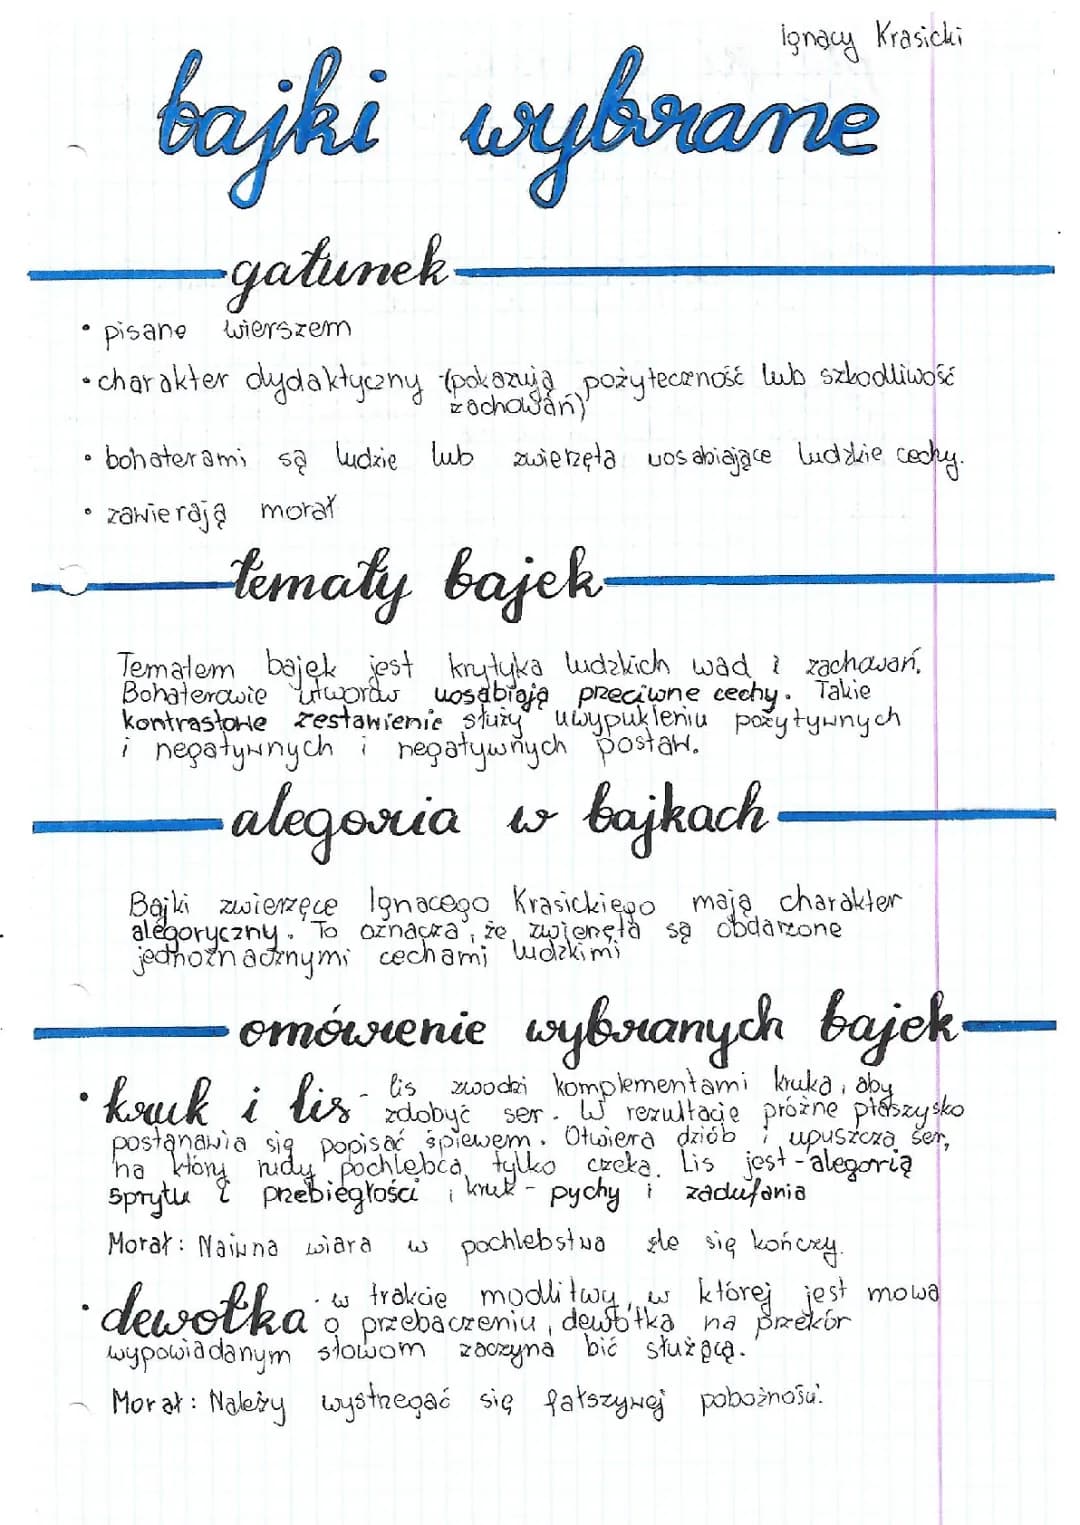 Ignacy Krasicki
bajki wybrane
gatunek
• pisane wierszem
• charakter dydaktyczny (pokazują pożyteczność lub szkodliwość
zachowań)
• bohaterami są ludzie lub zwierzęta uosabiające ludzkie cechy.
• zawierają morał
tematy bajek
Tematem bajek jest krytyka ludzkich wad i zachowań.
Bohaterowie utworów uosabiają przeciwne cechy. Takie
kontrastowe zestawienie służy uwypukleniu pozytywnych
i negatywnych i negatywnych postaw.
alegoria w bajkach
Bajki zwierzęce Ignacego Krasickiego mają charakter
alegoryczny. To oznacza, że zwierzęta są obdarzone
jednoznacznymi cechami ludzkimi
omówienie wybranych bajek
• kruk i lis - lis zwodzi komplementami kruka, aby
zdobyć ser. W rezultacie próżne ptaszysko
postanawia się popisać śpiewem. Otwiera dziób i upuszcza ser,
na który rudy pochlebca tylko czeka. Lis jest - alegorią
sprytu i przebiegłości, kruk - pychy i zadufania
Morał: Naiwna wiara w pochlebstwa źle się kończy.
• dewotka - w trakcie modlitwy, w której jest mowa
o przebaczeniu, dewotka na przekór
wypowiadanym słowom zaczyna bić służącą.
Morał: Należy wystrzegać się fałszywej pobożności.